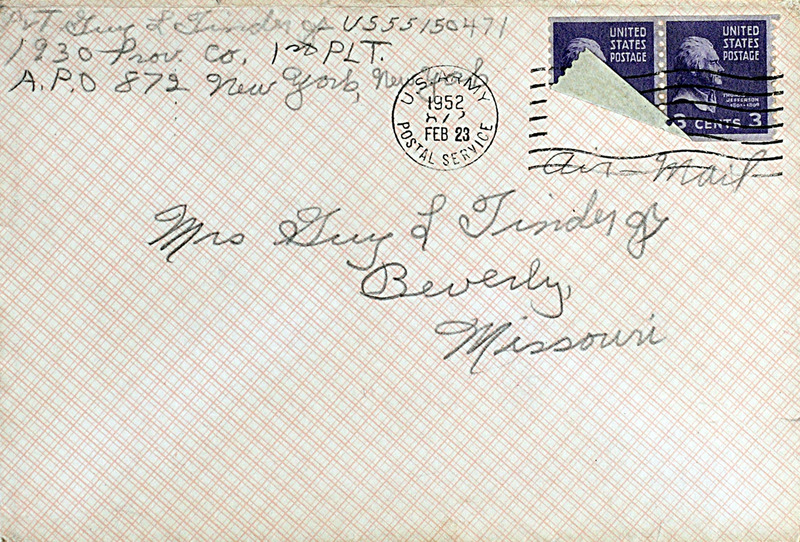 Pvt Guy L Tinder Jr US55150471
1930 Prov. Co, 1st PLT.
A.P.O 872 New York, New York
U.S. ARMY
1952
FEB 23
POSTAL SERVICE
UNITED
STATES
POSTAGE
UNITED
STATES
POSTAGE
THOMAS
JEFFERSON
3 CENTS 3
Air-Mail
Mrs Guy L Tinder Jr
Beverly,
Missouri